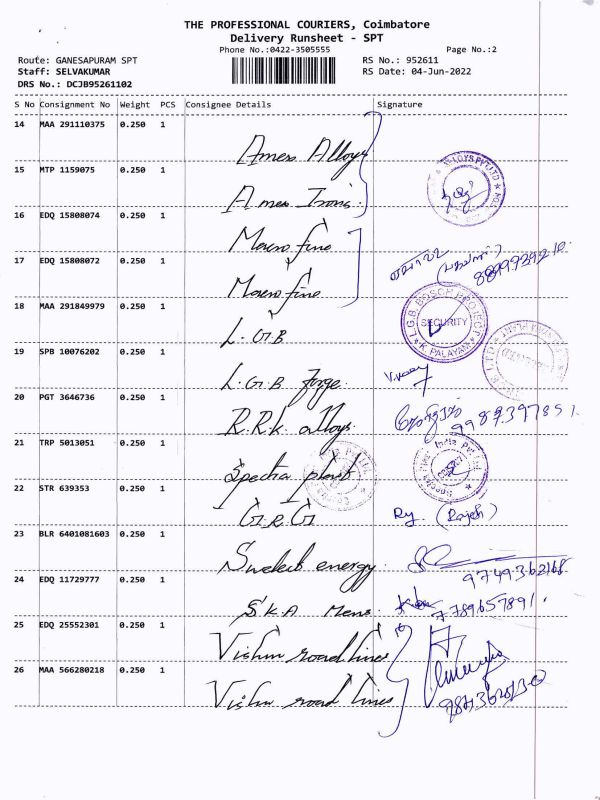 THE PROFESSIONAL COURIERS, Coimbatore
Delivery Runsheet - SPT
Phone No.:0422-3505555
Page No.:2
Route: GANESAPURAM SPT
RS No.: 952611
Staff: SELVAKUMAR
RS Date: 04-Jun-2022
DRS No.: DCJB95261102
S No Consignment No Weight PCS Consignee Details Signature
14 MAA 291110375 0.250 1 Amex Alloys
15 MTP 1159075 0.250 1 Amex Irons
16 EDQ 15808074 0.250 1 Macro fine
17 EDQ 15808072 0.250 1 Macro fine
18 MAA 291849979 0.250 1 L.G.B
L.G.B. BOSCH PROJECT
SECURITY
K. PALAYAM
19 SPB 10076202 0.250 1 L.G.B forge
20 PGT 3646736 0.250 1 R.R.k. alloys
21 TRP 5013051 0.250 1 Spectra plast
22 STR 639353 0.250 1 G.R.G Ry. (Rajesh)
23 BLR 6401081603 0.250 1 energy
24 EDQ 11729777 0.250 1 S.K.A Mens 7789657891.
25 EDQ 25552301 0.250 1 Vishnu road lines
26 MAA 566280218 0.250 1 Vishnu road lines